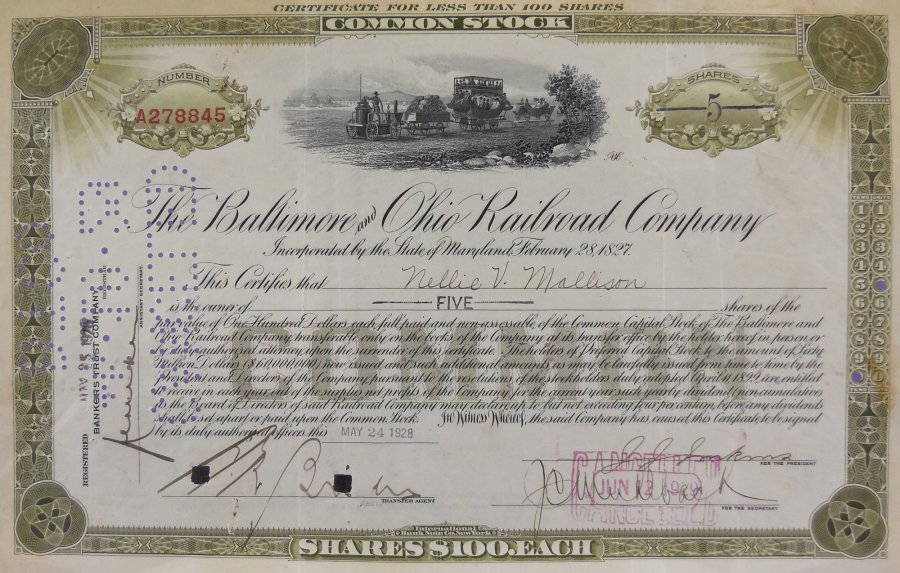 CERTIFICATE FOR LESS THAN 100 SHARES
COMMON STOCK
NUMBER
A278845
SHARES
5
The Baltimore and Ohio Railroad Company
Incorporated by the State of Maryland, February 28, 1827.
This Certifies that Nellie V. Mallison
is the owner of FIVE shares of the
par value of One Hundred Dollars each full paid and non-assessable of the Common Capital Stock of The Baltimore and
Ohio Railroad Company, transferable only on the books of the Company at its transfer office by the holder hereof in person or
by duly authorized attorney, upon the surrender of this certificate. The holders of Preferred Capital Stock to the amount of Sixty
Million Dollars ($60,000,000) now issued and such additional amounts as may be lawfully issued from time to time by the
President and Directors of the Company, pursuant to the resolution of the stockholders duly adopted April 1899, are entitled
to receive in each year out of the surplus net profits of the Company for the current year such yearly dividend (non-cumulative)
as the Board of Directors of said Railroad Company may declare, up to but not exceeding four per centum, before any dividend
shall be set apart or paid upon the Common Stock. In Witness Whereof, the said Company has caused this Certificate to be signed
by its duly authorized officers this MAY 24 1928
REGISTERED
BANKERS TRUST COMPANY
ASSISTANT SECRETARY
TRANSFER AGENT
FOR THE PRESIDENT
FOR THE SECRETARY
CANCELLED
JUN 12 1929
CANCELLED
TENS UNITS
1 1
2 2
3 3
4 4
5 5
6
7 7
8 8
9 9
0
International
Bank Note Co. New York
SHARES $100. EACH